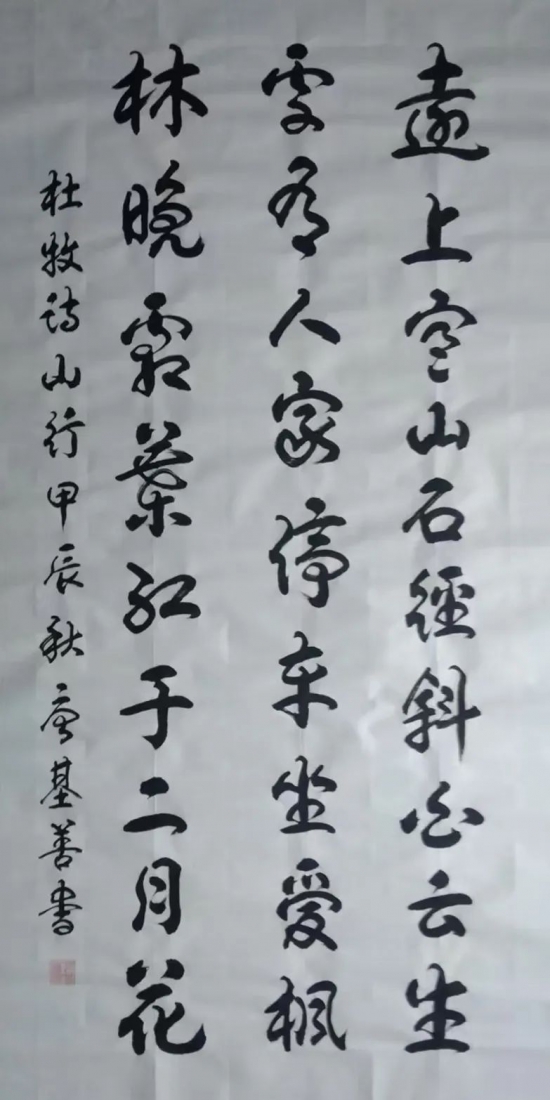 遠上寒山石徑斜白云生
處有人家停车坐爱楓
林晚霜葉紅于二月花
杜牧詩山行甲辰秋唐基善書